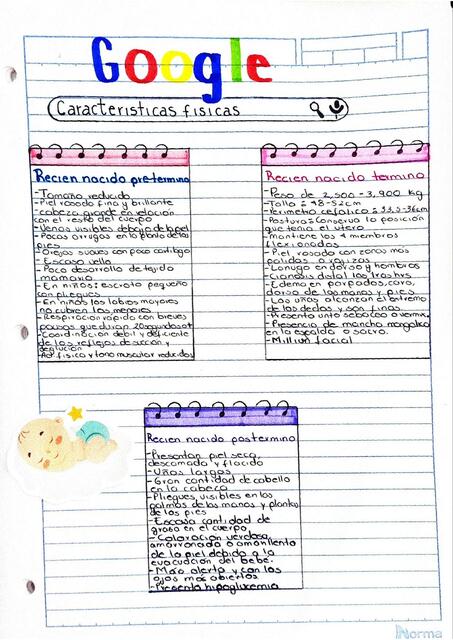 Google
Caracteristicas fisicas
Recien nacido pre-termino
-Tamaño reducido
-Piel rosada fina y brillante
-cabeza grande en relación
con el resto del cuerpo
-Venas visibles debajo de la piel
-Pocas arrugas en la planta de los
pies
-Orejas suaves con poco cartilago
-Escaso vello
-Poco desarrollo de tejido
mamario
-En niños: escroto pequeño
con pliegues
-En niñas los labios mayores
no cubren los menores
-Respiración rápida con breves
pausas que duran 20segundos
-Coordinación debil y deficiente
de los reflejos de succion y
deglucion
-Act fisica y tono muscular reducidos
Recien nacido termino
-Peso de 2,500-3,900 kg
-Talla: 48-52cm
-Perimetro cefalico: 33,5-36cm
-Postura: Conserva la posición
que tenia el utero
-Mantiene los 4 miembros
flexionados
-Piel rosada con zonas mas
palidas o rojizas
-Lanugo en dorso y hombros
-Cianosis distal las 1ras hrs
-Edema en parpados, cara,
dorso de las manos y pies
-Las uñas alcanzan el extremo
de los dedos y son finas
-Presenta unto sebaceo o vermix
-Presencia de mancha mongolica
en la espalda o sacro.
-Millium facial
Recien nacido postermino
-Presentan piel seca,
descamada y flacida
-Uñas largas
-Gran cantidad de cabello
en la cabeza
-Pliegues visibles en las
palmas de las manos y plantas
de los pies
-Escasa cantidad de
grasa en el cuerpo
-Coloración verdosa,
amarronada o amarillenta
de la piel debido a la
evacuación del bebe.
-Mas alerta y con los
ojos mas abiertos
-Presenta hipoglucemia
Norma